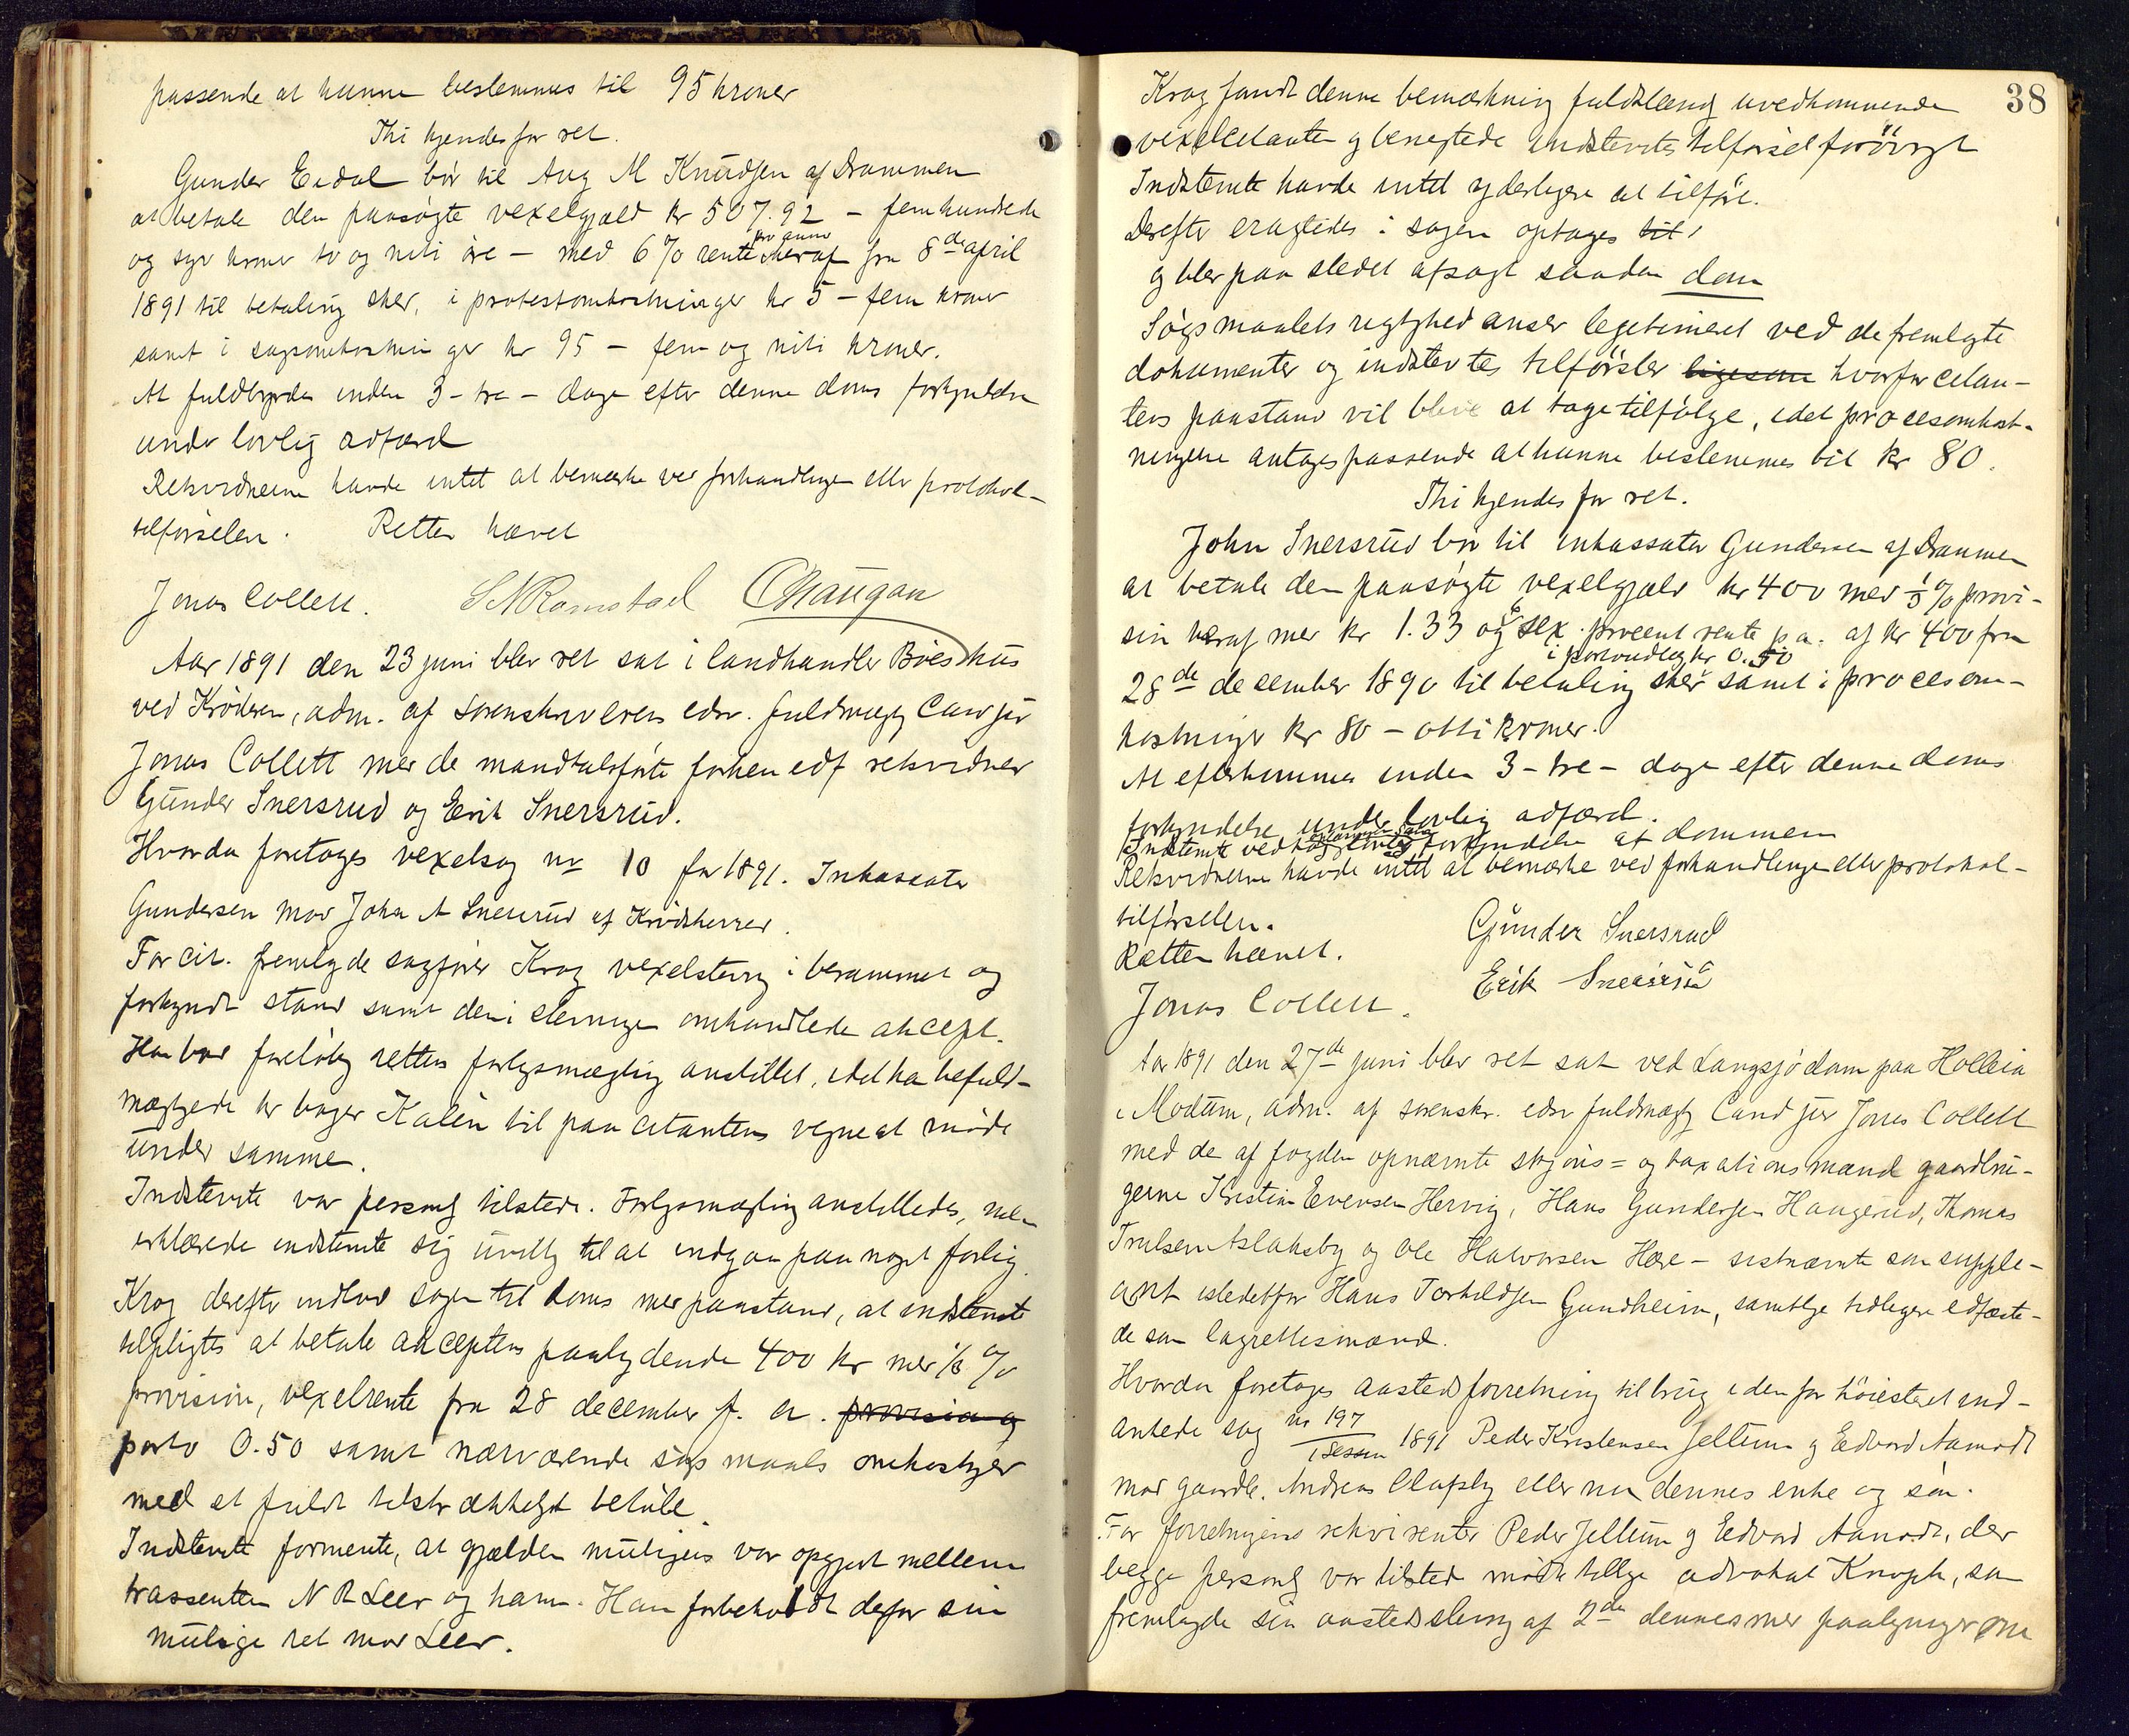 passende at kunne bestemmes til 95 kroner
Thi kjendes for ret.
Gunder Eidal bør til Aug M Knudsen af Drammen
at betale den paasøgte vexelgjæld kr 507.92 – femhundrede
og syv kroner to og niti øre – med 6 % rente pro anno heraf fra 8de april
1891 til betaling sker, i protestomkostninger kr 5 – fem kroner
samt i sagsomkostninger kr 95 – fem og niti kroner.
At fuldbyrdes inden 3 – tre – dage efter denne doms forkyndelse
under lovlig adfærd
Retsvidnerne havde intet at bemærke ved forhandlingen eller protokol-
tilførselen. Retten hævet
Jonas Collett. S N Ramstad C Haugan
Aar 1891 den 23 juni blev ret sat i landhandler Bøes hus
ved Krøderen, adm. af sorenskriverens edsv. fuldmægtig Cand jur
Jonas Collett med de mandtalsførte forhen edf retsvidner
Gunder Snersrud og Erik Snersrud.
Hvorda foretoges vexelsag nr 10 for 1891. Inkassator
Gundersen mod John A Snersrud af Krødsherred.
For cit. fremlagde sagfører Krag vexelstevning i berammet og
forkyndt stand samt den i stevningen omhandlede akcept.
Han bad foreløbig rettens forligsmægling anstillet, idet han befuld-
mægtigede hr bager Kalén til paa citantens vegne at møde
under samme.
Indstevnte var personlig tilstede. Forligsmægling anstilledes, men
erklærede indstevnte sig uvillig til at indgaa paa noget forlig.
Krag derefter indlod sagen til doms med paastand, at indstevnte
tilpligtes at betale akceptens paalydende 400 kr med 1/3 %
provision, vexelrente fra 28 december f. a. provision og
porto 0.50 samt nærværende søgsmaals omkostninger
med et fuldt tilstrækkeligt beløb.
Indstevnte formente, at gjælden muligens var opgjort mellem
trassenten N R Leer og ham. Han forbeholdt derfor sin
mulige ret mod Leer.
38
Krag fandt denne bemærkning fuldstændig uvedkommende
vexelcitanten og benegtede indstevntes tilførsel forøvrigt
Indstevnte havde intet yderligere at tilføre.
Derefter eragtedes: sagen optages til
og blev paa stedet afsagt saadan dom
Søgsmaalets rigtighed anser legitimeret ved de fremlagte
dokumenter og indstevntes tilførsler ligesom hvorfor citan-
tens paastand vil blive at tage tilfølge, idet procesomkost-
ningerne antages passende at kunne bestemmes til kr 80.
Thi kjendes for ret.
John Snersrud bør til inkassator Gundersen af Drammen
at betale den paasøgte vexelgjæld kr 400 med 1/3 % provi-
sion heraf med kr 1.33 og sex procent rente p a. af kr 400 fra
28de december 1890 til betaling sker i portoudlæg kr 0.50 samt i procesom-
kostninger kr 80 – otti kroner.
At efterkommes inden 3 – tre – dage efter denne doms
forkyndelse under lovlig adfærd.
Indstevnte vedtog lovlig forkyndelse af dommen
Retsvidnerne havde intet at bemærke ved forhandlingen eller protokol-
tilførselen.
Retten hævet.
Gunder Snersrud
Erik Snersrud
Jonas Collett.
Aar 1891 den 27de juni blev ret sat ved Langsjødam paa Holleia
i Modum, adm. af sorenskr. edsv fuldmægt Cand jur Jonas Collett
med de af fogden opnævnte skjøns= og taxationsmænd gaardbru-
gerne Kristian Evensen Hervig, Hans Gundersen Haugerud, Thomas
Trulsen Aslaksby og Ole Halvorsen Hære – sistnævnte som supple-
ant istedetfor Hans Torkildsen Gundheim, samtlige tidligere edfæste-
de som lagrettesmænd.
Hvorda foretoges aastedsforretning til brug i den for höiesteret ind-
ankede sag nr 197 / 1 Session 1891 Peder Kristensen Jellum og Edvard Aamodt
mod gaardb. Andreas Olafsby eller nu dennes enke og søn.
For forretningens rekvirenter Peder Jellum og Edvard Aamodt, der
begge personlig var tilstede mødte tillige advokat Knoph, som
fremlagde sin aastedsstevning af 2den dennes med paategninger om